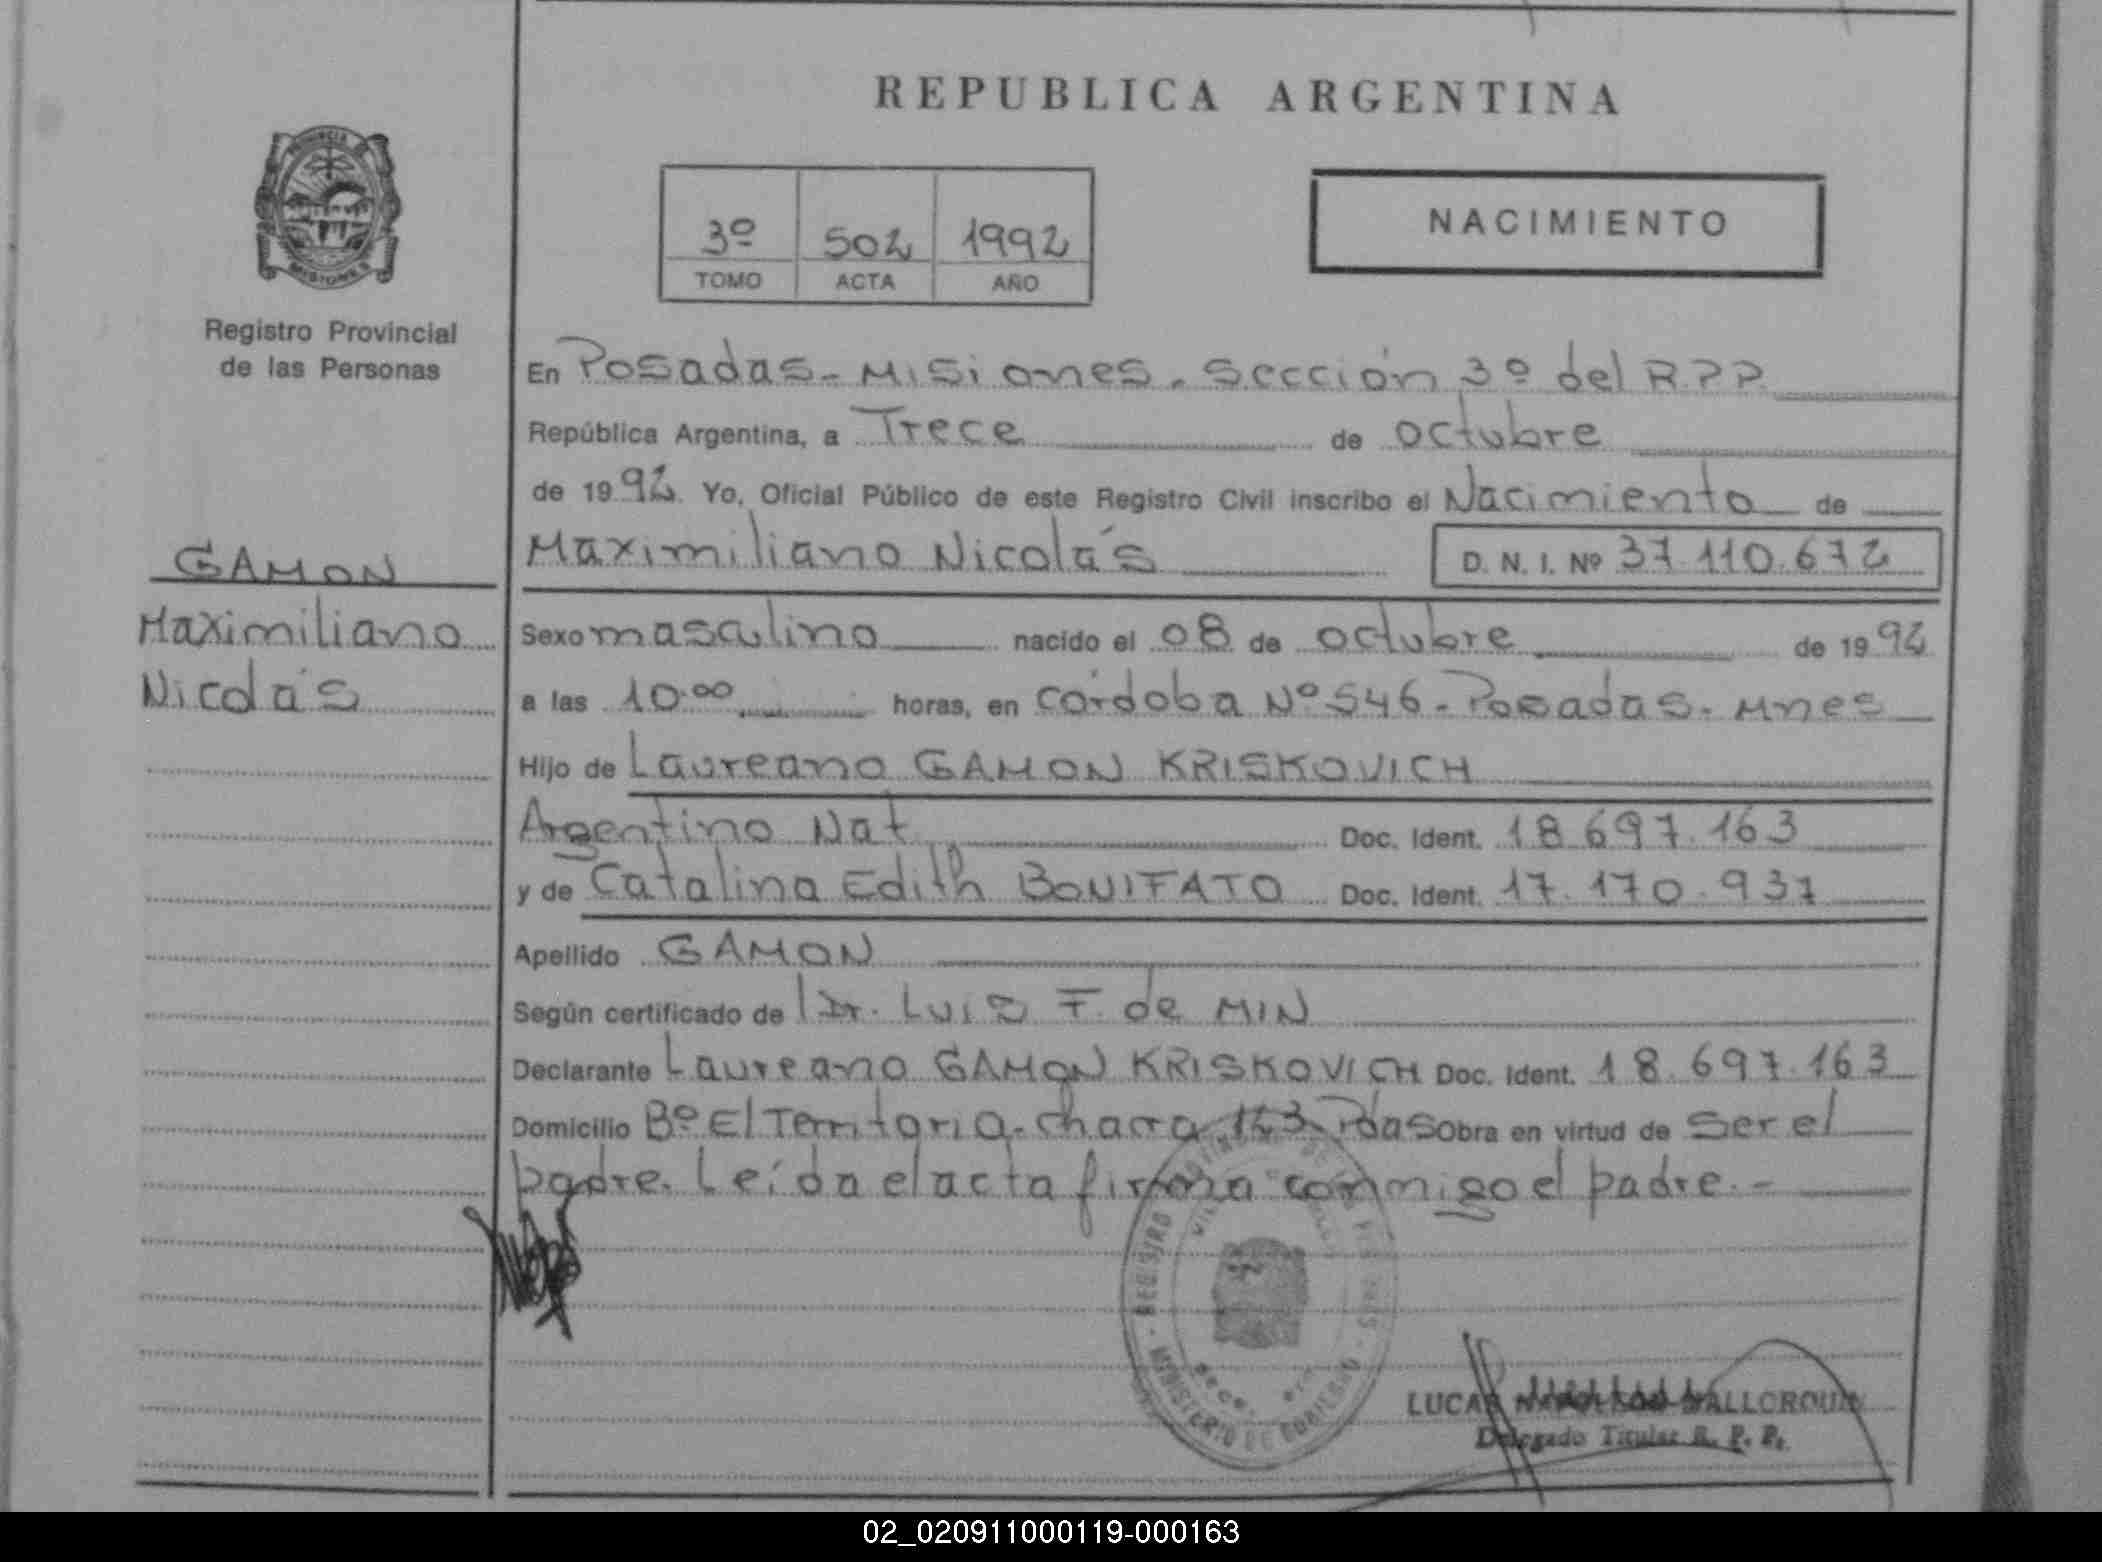 REPUBLICA ARGENTINA
PROVINCIA DE
MISIONES
Registro Provincial
de las Personas
3º 502 1992
TOMO ACTA AÑO
NACIMIENTO
En Posadas - Misiones. Sección 3º del R.P.P.
República Argentina, a Trece de octubre
de 1992. Yo, Oficial Público de este Registro Civil inscribo el Nacimiento de
Maximiliano Nicolás D. N. I. Nº 37.110.672
GAMON
Maximiliano
Nicolás
Sexo masculino nacido el 08 de octubre de 1992
a las 10.00 horas, en Córdoba Nº 546 - Posadas - Mnes
Hijo de Laureano GAMON KRISKOVICH
Argentino Nat. Doc. Ident. 18.697.163
y de Catalina Edith BONIFATO Doc. Ident. 17.170.937
Apellido GAMON
Según certificado de Dr. Luis F. de MIN
Declarante Laureano GAMON KRISKOVICH Doc. Ident. 18.697.163
Domicilio Bº El Territorio - chacra 143 - Pdas Obra en virtud de Ser el
padre. Leída el acta firma conmigo el padre. -
REGISTRO
MINISTERIO DE GOBIERNO
LUCAS MALLORQUIN
Delegado Titular R. P. P.
02_020911000119-000163